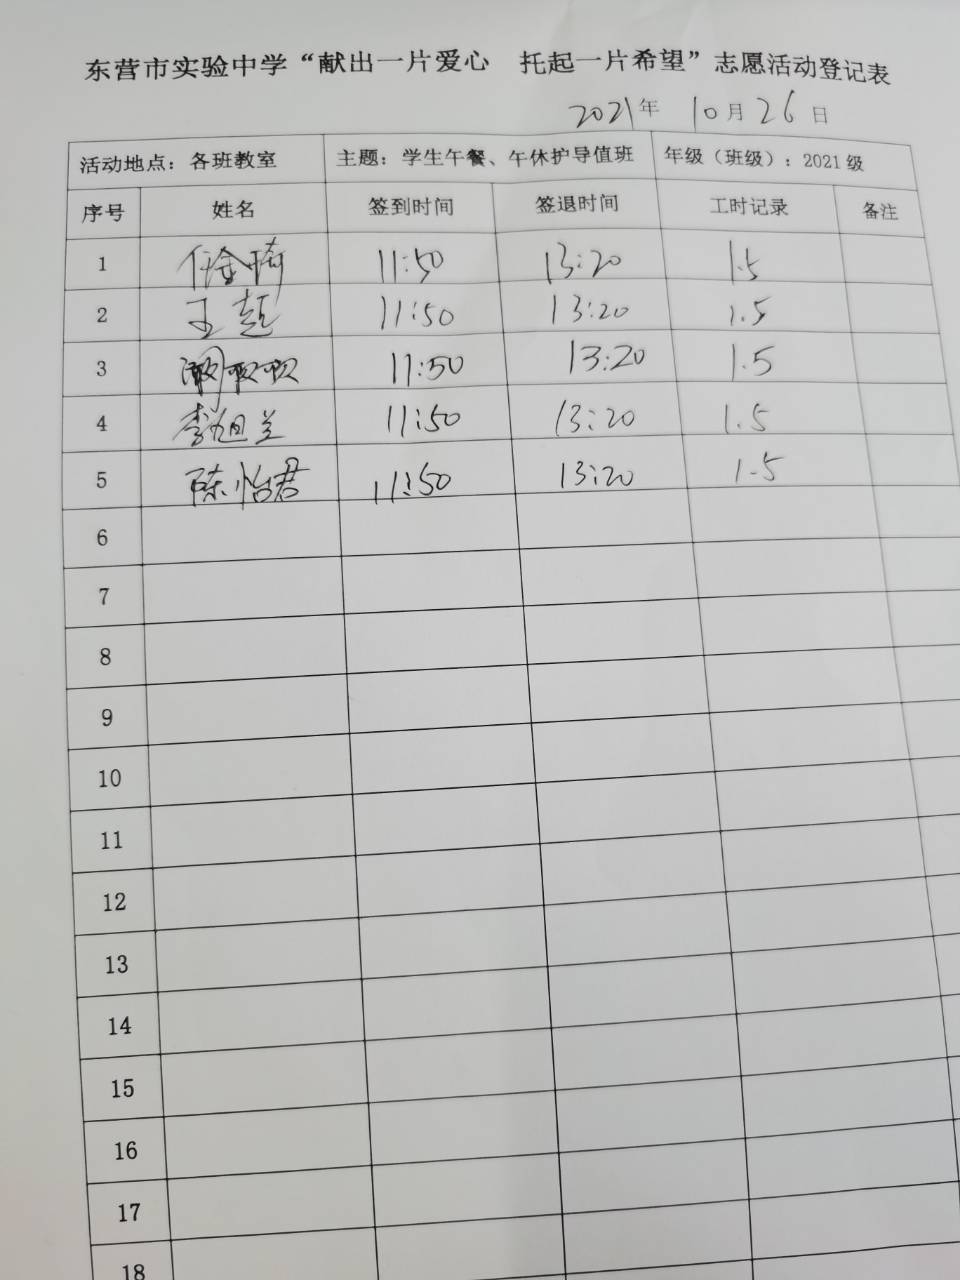 东营市实验中学“献出一片爱心 托起一片希望”志愿活动登记表
2021年 10月26日
活动地点：各班教室 主题：学生午餐、午休护导值班 年级（班级）：2021级
序号 姓名 签到时间 签退时间 工时记录 备注
1 任金琦 11:50 13:20 1.5
2 王超 11:50 13:20 1.5
3 11:50 13:20 1.5
4 李旭兰 11:50 13:20 1.5
5 陈怡君 11:50 13:20 1.5
6
7
8
9
10
11
12
13
14
15
16
17
18